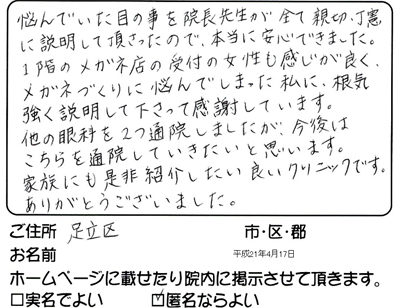 悩んでいた目の事を院長先生が全て親切、丁寧
に説明して頂さったので、本当に安心できました。
1階のメガネ店の受付の女性も感じが良く、
メガネづくりに悩んでしまった私に、根気
強く説明して下さって感謝しています。
他の眼科を2つ通院しましたが、今後は
こちらを通院していきたいと思います。
家族にも是非紹介したい良いクリニックです。
ありがとうございました。
ご住所 足立区 市・区・郡
お名前 平成21年4月17日
ホームページに載せたり院内に掲示させて頂きます。
□実名でよい ☑匿名ならよい